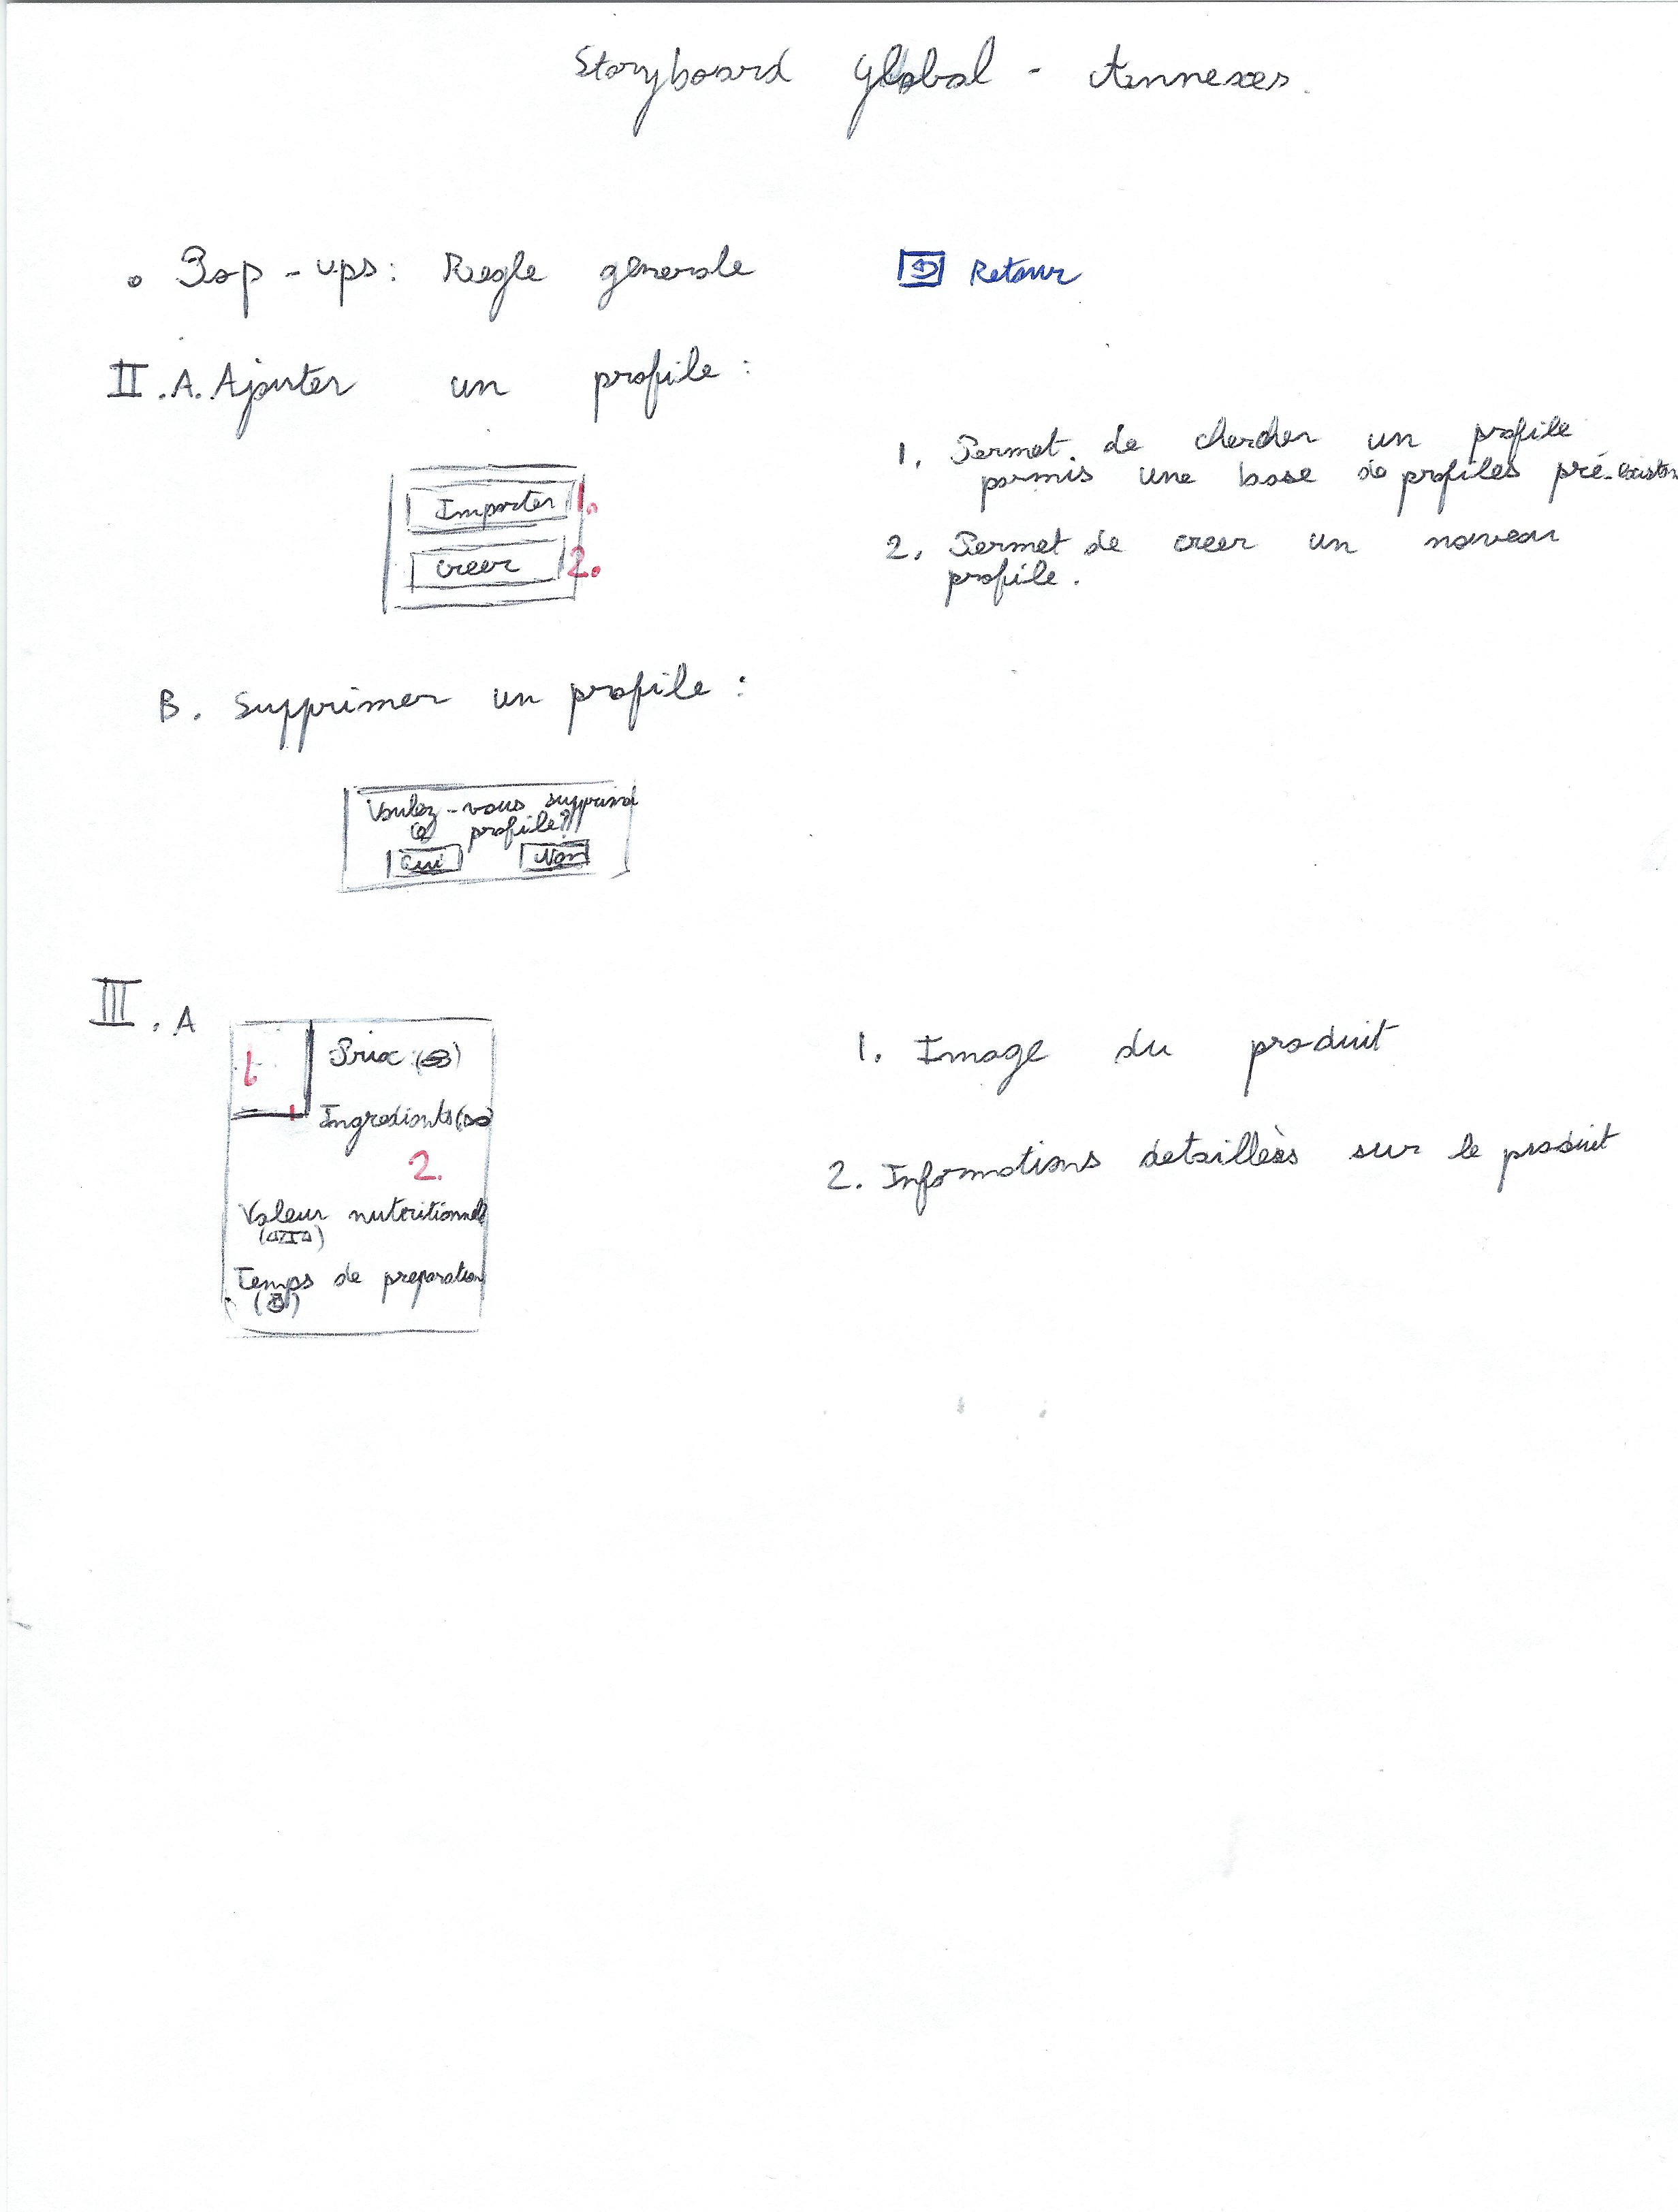 Storyboard Global - Annexes.
• Pop-ups: Regle generale
Retour
II.A. Ajouter un profile :
Importer 1.
creer 2.
1. Permet de chercher un profile
parmis une base de profiles pré-existan
2. Permet de creer un nouveau
profile.
B. Supprimer un profile :
Voulez-vous supprimer
ce profile ?
Oui Non
III. A
1.
Prix :
Ingredients
2.
Valeur nutritionnelle
Temps de preparation
1. Image du produit
2. Informations detaillées sur le produit